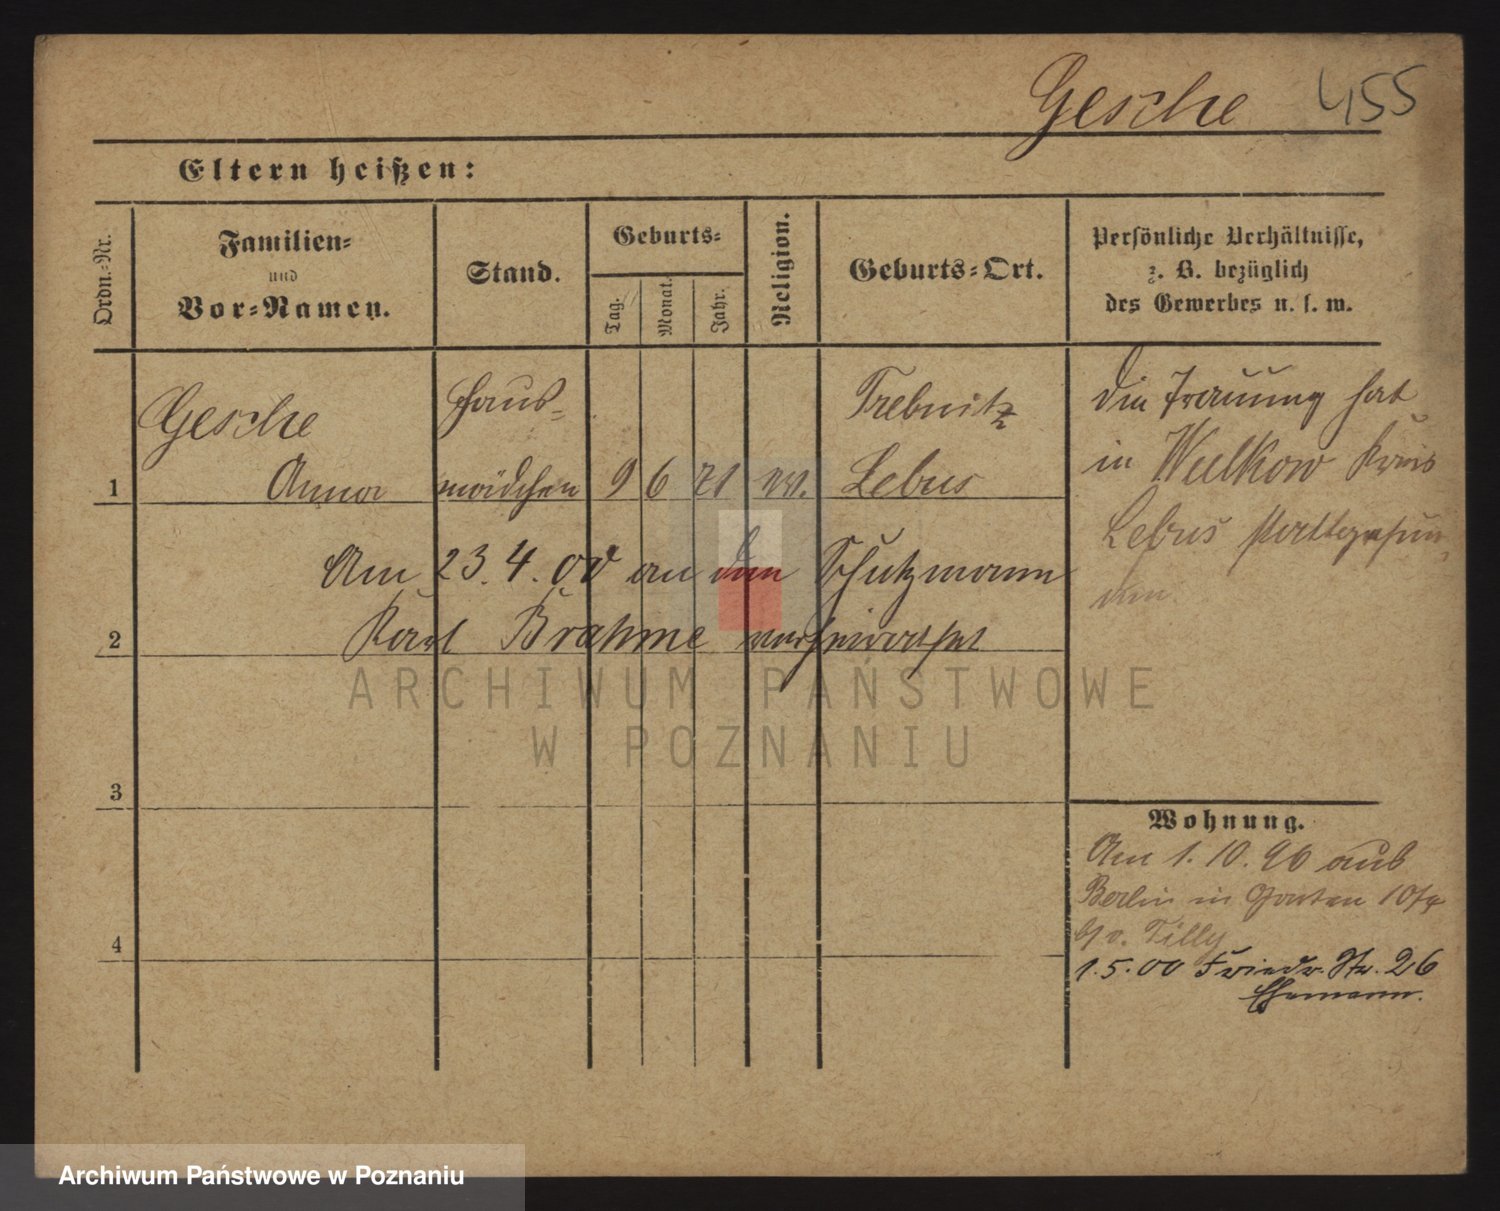 Gesche 455
Eltern heißen:
Ordn.=Nr.
Familien=
und
Vor=Namen.
Stand.
Geburts=
Tag.
Monat.
Jahr.
Religion.
Geburts=Ort.
Persönliche Verhältnisse,
z. B. bezüglich
des Gewerbes u. s. w.
Gesche Haus= Trebnitz
1 Anna mädchen 9 6 71 ev. Lebus
Am 23.4.00 an den Schutzmann
2 Karl Brahme verheirathet
3
4
Die Trauung hat
in Wulkow Kreis
Lebus stattgefun
den.
Wohnung.
Am 1.10.96 aus
Berlin in Garten
v. Tilly
1.5.00 Friedr. Str. 26
Ehemann.
ARCHIWUM PAŃSTWOWE
W POZNANIU
Archiwum Państwowe w Poznaniu